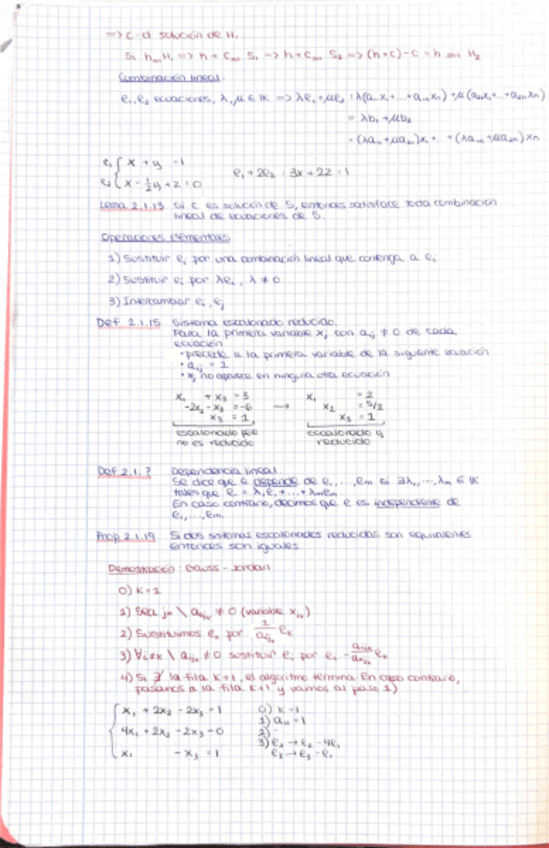 => c-d solución de H.
Si h sol H₁ => h + c sol S₁ => h + c sol S₂ => (h+c)-c = h sol H₂
Combinación lineal.
e₁, e₂ ecuaciones, λ, μ ∈ K => λe₁ + μe₂ : λ(a₁₁x₁+...+a₁ₙxₙ) + μ(a₂₁x₁+...+a₂ₙxₙ)
= λb₁ + μb₂
= (λa₁₁ + μa₂₁)x₁ + ... + (λa₁ₙ + μa₂ₙ)xₙ
e₁ { x + y = 1
e₂ { x - ½y + z = 0 e₁ + 2e₂ : 3x + 2z = 1
Lema 2.1.13 Si c es solución de S, entonces satisface toda combinación
lineal de ecuaciones de S.
Operaciones Elementales
1) Sustituir eᵢ por una combinación lineal que contenga a eᵢ
2) Sustituir eᵢ por λeᵢ, λ ≠ 0
3) Intercambiar eᵢ, eⱼ
Def 2.1.15 Sistema escalonado reducido.
Para la primera variable xⱼ con aᵢⱼ ≠ 0 de cada
ecuación
• precede a la primera variable de la siguiente ecuación
• aᵢⱼ = 1
• xⱼ no aparece en ninguna otra ecuación
x₁ + x₃ = 3 x₁ = 2
-2x₂ - x₃ = -6 → x₂ = 5/2
x₃ = 1 x₃ = 1
escalonado pero escalonado y
no es reducido reducido
Def 2.1.? Dependencia lineal.
Se dice que e depende de e₁, ..., eₘ si ∃λ₁, ..., λₘ ∈ K
tales que e = λ₁e₁ + ... + λₘeₘ.
En caso contrario, decimos que e es independiente de
e₁, ..., eₘ.
Prop 2.1.19 Si dos sistemas escalonados reducidos son equivalentes
entonces son iguales.
Demostración: Gauss - Jordan
0) K = 1
1) Sea jₖ \ aₖⱼₖ ≠ 0 (variable xⱼₖ)
2) Sustituimos eₖ por 1/aₖⱼₖ eₖ
3) ∀i≠k \ aᵢⱼₖ ≠ 0 sustituir eᵢ por eᵢ - aᵢⱼₖ/aₖⱼₖ eₖ
4) Si ∄ la fila K+1, el algoritmo termina. En caso contrario,
pasamos a la fila K+1 y vamos al paso 1)
{ x₁ + 2x₂ - 2x₃ = 1 0) K=1
4x₁ + 2x₂ - 2x₃ = 0 1) a₁₁ = 1
2) -
x₁ - x₃ = 1 3) e₂ → e₂ - 4e₁
e₃ → e₃ - e₁